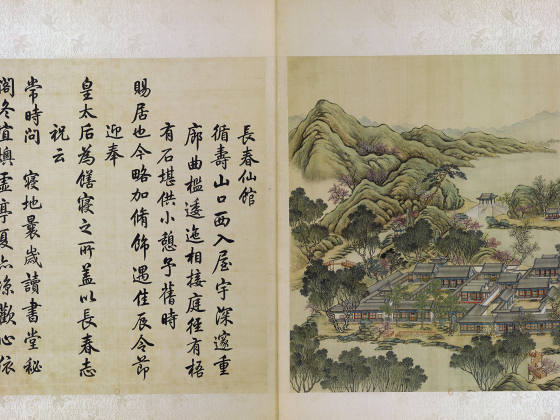 長春仙館
循壽山口西入屋宇深邃重
廊曲檻逶迤相接庭徑有梧
有石堪供小憩予舊時
賜居也今略加脩飾遇佳辰令節
迎奉
皇太后為膳寢之所蓋以長春志
祝云
常時問 寢地曩歲讀書堂秘
閣冬宜燠虛亭夏亦涼歡心依